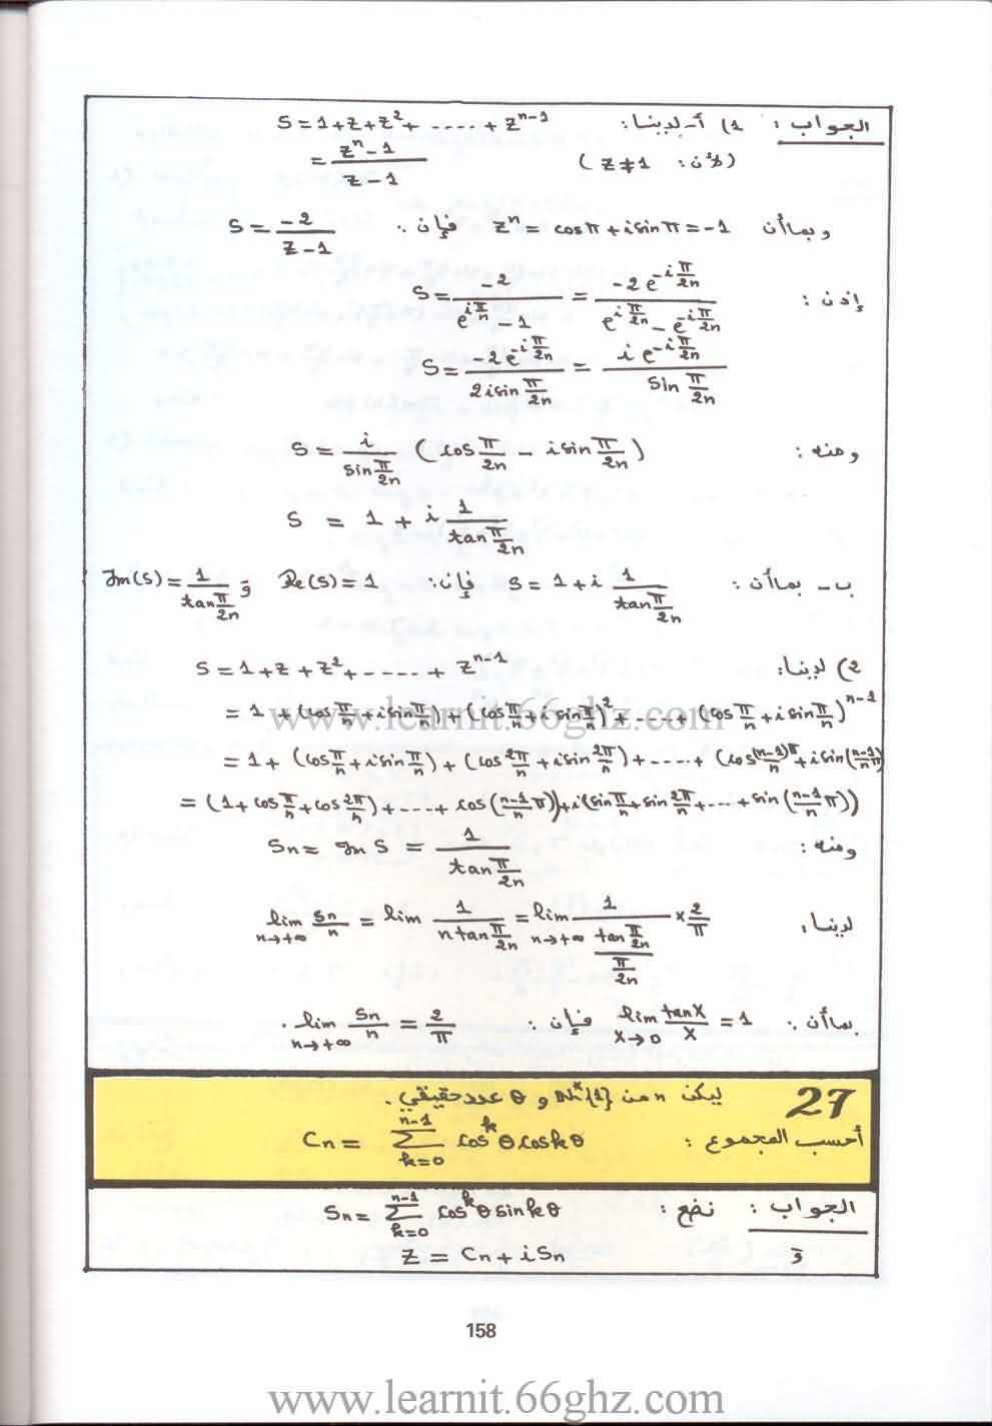 الجواب : 1) أ- لدينا: S = 1+z+z²+ ..... + z^{n-1}
(لأن: z≠1) = \frac{z^n - 1}{z - 1}
وبما أن z^n = cosπ + i sinπ = -1 فإن : S = \frac{-2}{z-1}
إذن : S = \frac{-2}{e^{i\frac{π}{n}} - 1} = \frac{-2e^{-i\frac{π}{2n}}}{e^{i\frac{π}{2n}} - e^{-i\frac{π}{2n}}}
S = \frac{-2e^{-i\frac{π}{2n}}}{2i sin\frac{π}{2n}} = \frac{i e^{-i\frac{π}{2n}}}{sin\frac{π}{2n}}
ومنه : S = \frac{i}{sin\frac{π}{2n}} (cos\frac{π}{2n} - i sin\frac{π}{2n})
S = 1 + i \frac{1}{tan\frac{π}{2n}}
ب - بما أن : S = 1 + i \frac{1}{tan\frac{π}{2n}} فإن: Re(S) = 1 و Im(S) = \frac{1}{tan\frac{π}{2n}}
2) لدينا: S = 1+z+z²+ ..... + z^{n-1}
= 1 + (cos\frac{π}{n} + i sin\frac{π}{n}) + (cos\frac{π}{n} + i sin\frac{π}{n})² + ..... + (cos\frac{π}{n} + i sin\frac{π}{n})^{n-1}
www.learnit.66ghz.com
= 1 + (cos\frac{π}{n} + i sin\frac{π}{n}) + (cos\frac{2π}{n} + i sin\frac{2π}{n}) + ..... + (cos\frac{(n-1)π}{n} + i sin(\frac{n-1}{n}π)
= (1 + cos\frac{π}{n} + cos\frac{2π}{n}) + ..... + cos(\frac{n-1}{n}π)) + i(sin\frac{π}{n} + sin\frac{2π}{n} + ... + sin(\frac{n-1}{n}π))
ومنه : Sn = Im S = \frac{1}{tan\frac{π}{2n}}
لدينا, lim_{n→+∞} \frac{Sn}{n} = lim \frac{1}{n tan\frac{π}{2n}} = lim_{n→+∞} \frac{1}{\frac{tan\frac{π}{2n}}{\frac{π}{2n}}} × \frac{2}{π}
بما أن : lim_{x→0} \frac{tan x}{x} = 1 فإن : lim_{n→+∞} \frac{Sn}{n} = \frac{2}{π} .
27 ليكن n من ℕ*\{1} و θ عدد حقيقي .
أحسب المجموع : Cn = \sum_{k=0}^{n-1} cos^k θ cos kθ
الجواب : نضع : Sn = \sum_{k=0}^{n-1} cos^k θ sin kθ
و z = Cn + i Sn
158
www.learnit.66ghz.com